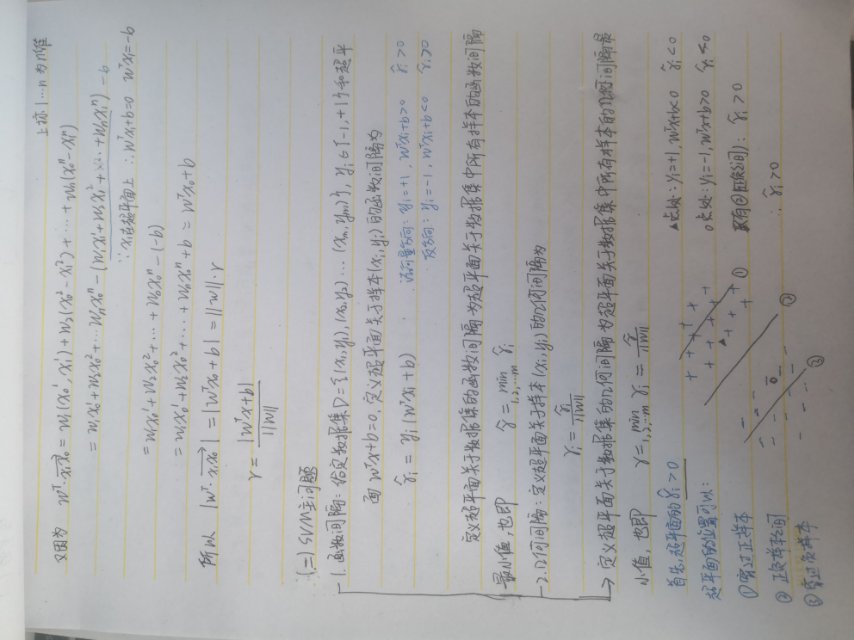 又因为 wᵀ·x₁x₀ = w₁(x₀¹, x₁¹) + w₂(x₀² - x₁²) + ⋯ + wₙ(x₀ⁿ - x₁ⁿ) 上标 1⋯n 为n维
= w₁x₀¹ + w₂x₀² + ⋯ wₙx₀ⁿ - (w₁x₁¹ + w₂x₁² + ⋯ + wₙx₁ⁿ) -b
∵ x₁在超平面上 ∴ wᵀx₁+b=0 wᵀx₁=-b
= w₁x₀¹ + w₂x₀² + ⋯ + wₙx₀ⁿ - (-b)
= w₁x₀¹ + w₂x₀² + ⋯ + wₙx₀ⁿ + b = wᵀx₀+b
所以 |wᵀ·x₁x₀| = |wᵀx₀+b| = ||w||·r
r = |wᵀx+b| / ||w||
(二) SVM主问题
1. 函数间隔: 给定数据集D={(x₁,y₁),(x₂,y₂)⋯(xₘ,yₘ)}, yᵢ∈{-1,+1}和超平
面wᵀx+b=0, 定义超平面关于样本(xᵢ,yᵢ)的函数间隔为
r̂ᵢ = yᵢ(wᵀxᵢ+b)
法向量方向: yᵢ=+1, wᵀxᵢ+b>0 r̂ᵢ>0
反方向: yᵢ=-1, wᵀxᵢ+b<0 r̂ᵢ>0
定义超平面关于数据集的函数间隔为超平面关于数据集中所有样本的函数间隔
最小值, 也即 r̂ = min r̂ᵢ
i=1,2,⋯m
2. 几何间隔: 定义超平面关于样本(xᵢ,yᵢ)的几何间隔为
rᵢ = r̂ᵢ / ||w||
定义超平面关于数据集的几何间隔为超平面关于数据集中所有样本的几何间隔最
小值, 也即 r = min rᵢ = r̂ / ||w||
i=1,2,⋯m
首先, 超平面的r̂ᵢ>0
超平面的位置可以:
①穿过正样本
②正负样本间
③穿过负样本
▲点处: yᵢ=+1, wᵀx+b<0 r̂ᵢ<0
○点处: yᵢ=-1, wᵀx+b>0 r̂ᵢ<0
只有②(正负间): r̂ᵢ>0
∴ r̂ᵢ>0
①
②
③